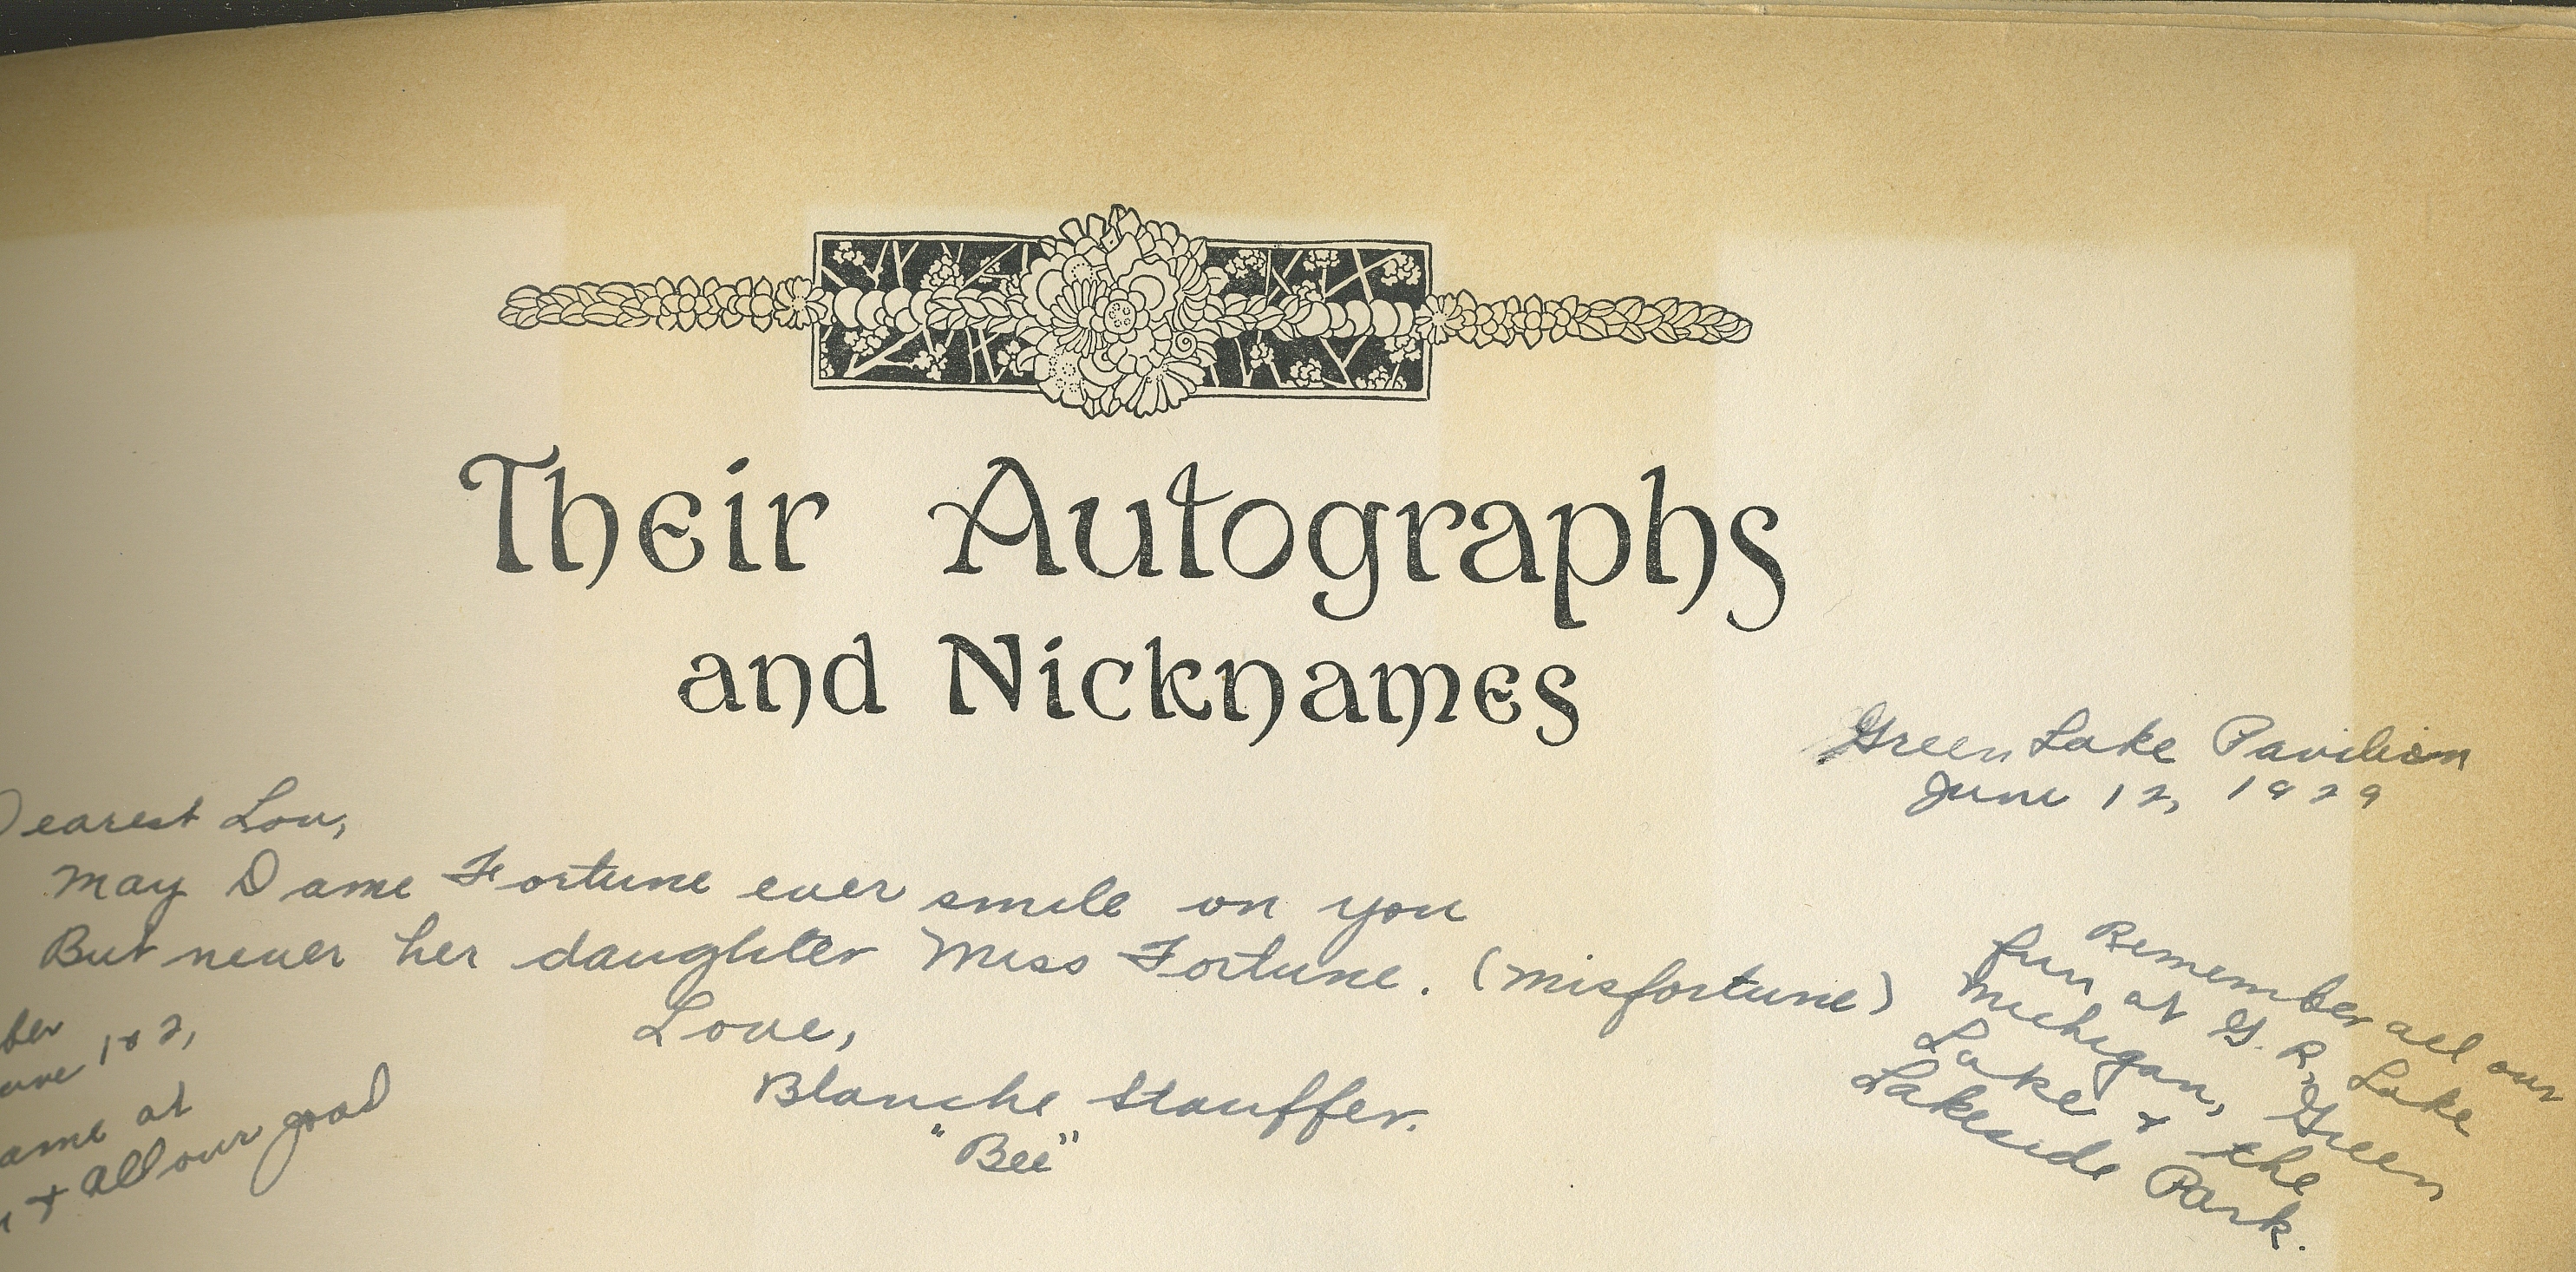 Their Autographs
and Nicknames
Green Lake Pavilion
June 12, 1929
Dearest Lou,
May Dame Fortune ever smile on you
But never her daughter Miss Fortune. (misfortune)
Love,
Blanche Stauffer.
"Bee"
Remember all our
fun at G. R., Lake
Michigan, Green
Lake & the
Lakeside Park.
ber
June 1 & 2,
ame at
& all our good